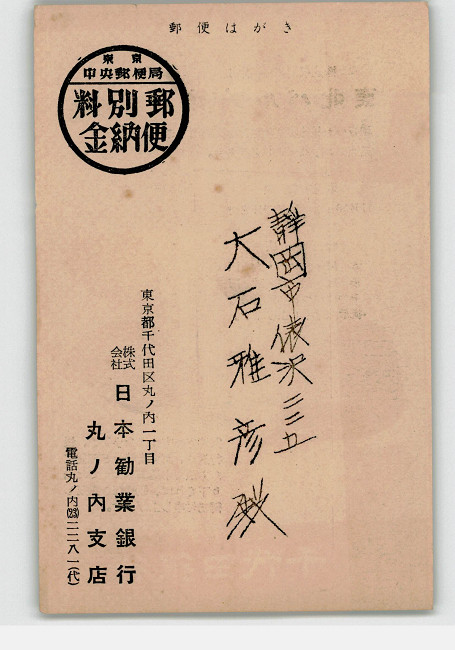 郵便はがき
東京
中央郵便局
料別郵
金納便
静岡市俵沢二二五
大石雅彦様
東京都千代田区丸ノ内一丁目
株式会社 日本勧業銀行
丸ノ内支店
電話丸ノ内(23)二二八一(代)